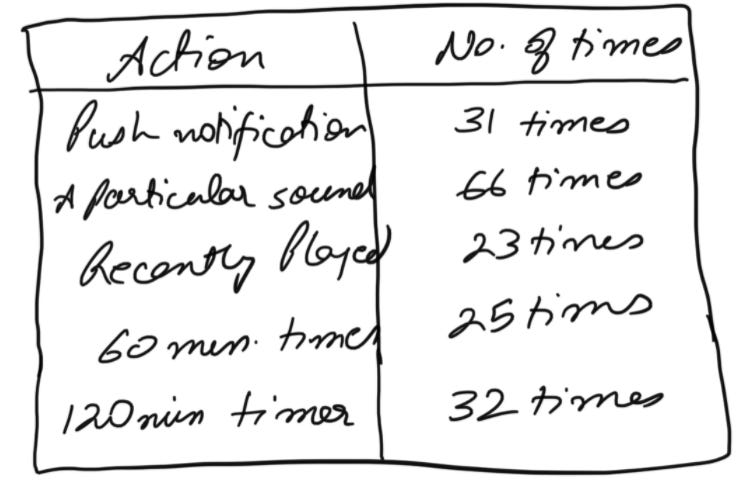 Action No. of times
Push notification 31 times
A particular sound 66 times
Recently Played 23 times
60 min. timer 25 times
120 min timer 32 times